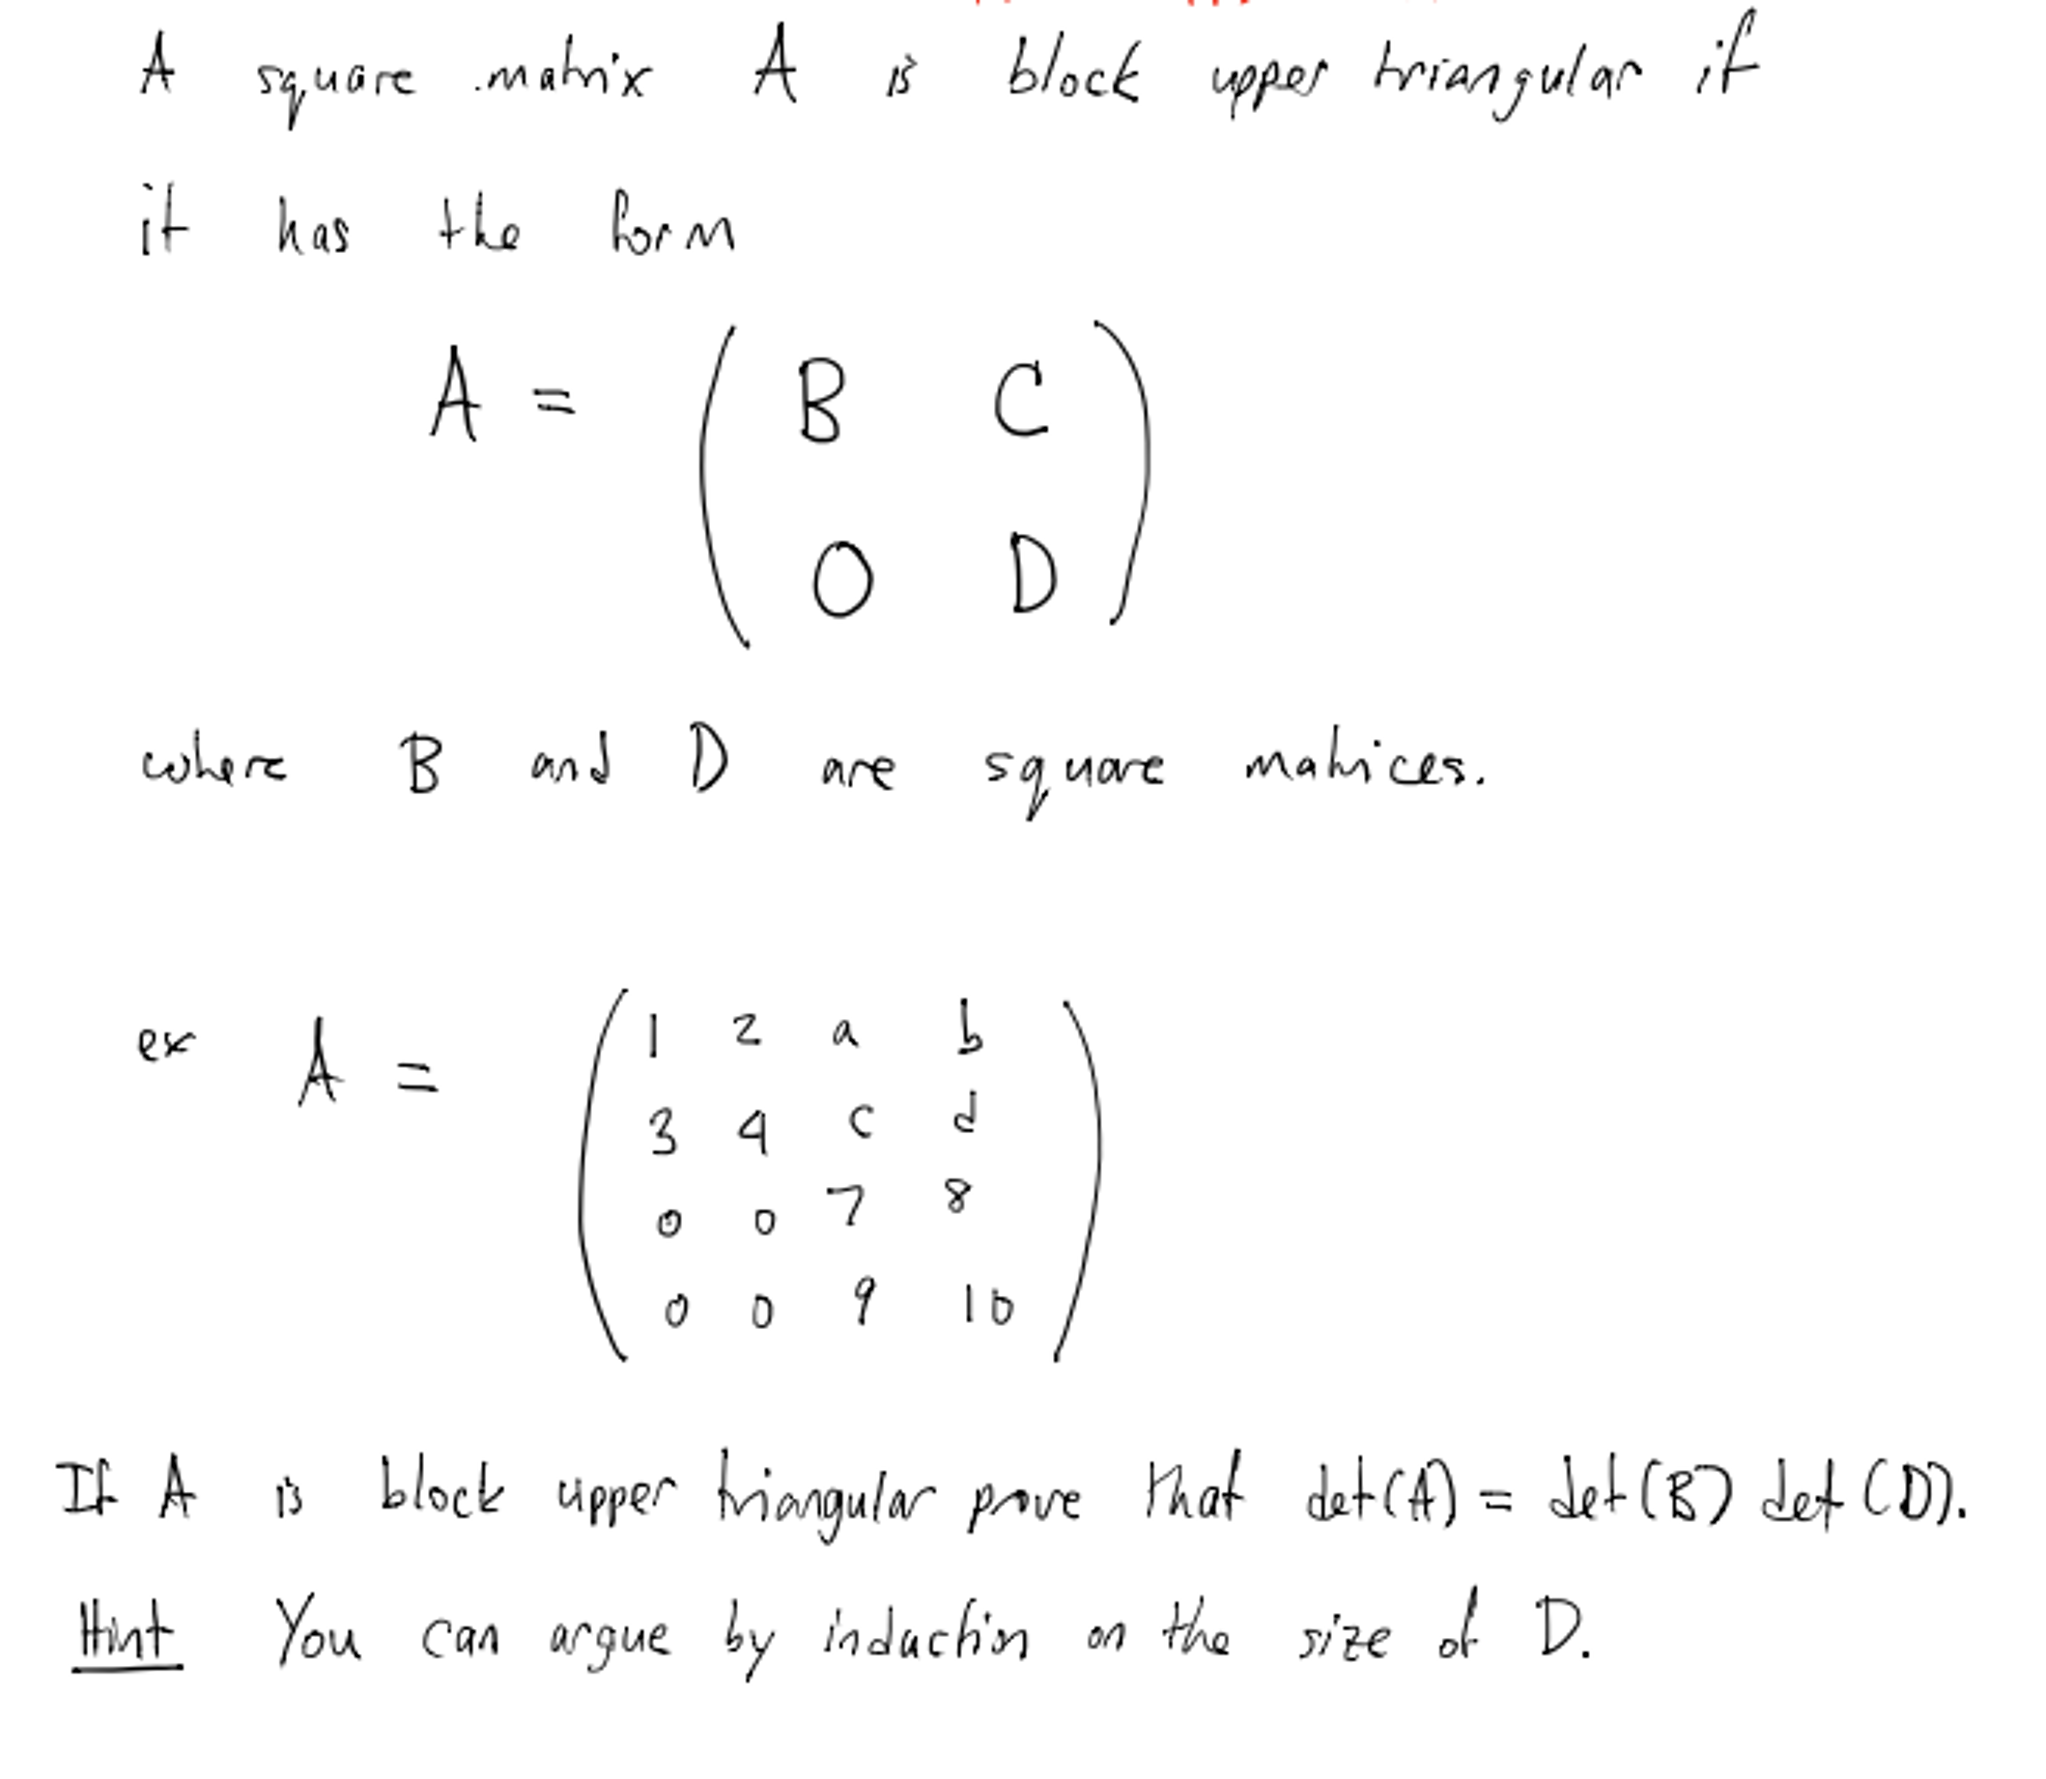 A square matrix A is block upper triangular if
it has the form
A = ( B C
O D )
where B and D are square matrices.
ex A = ( 1 2 a b
3 4 c d
0 0 7 8
0 0 9 10 )
If A is block upper triangular prove that det(A) = det(B) det(D).
Hint You can argue by induction on the size of D.